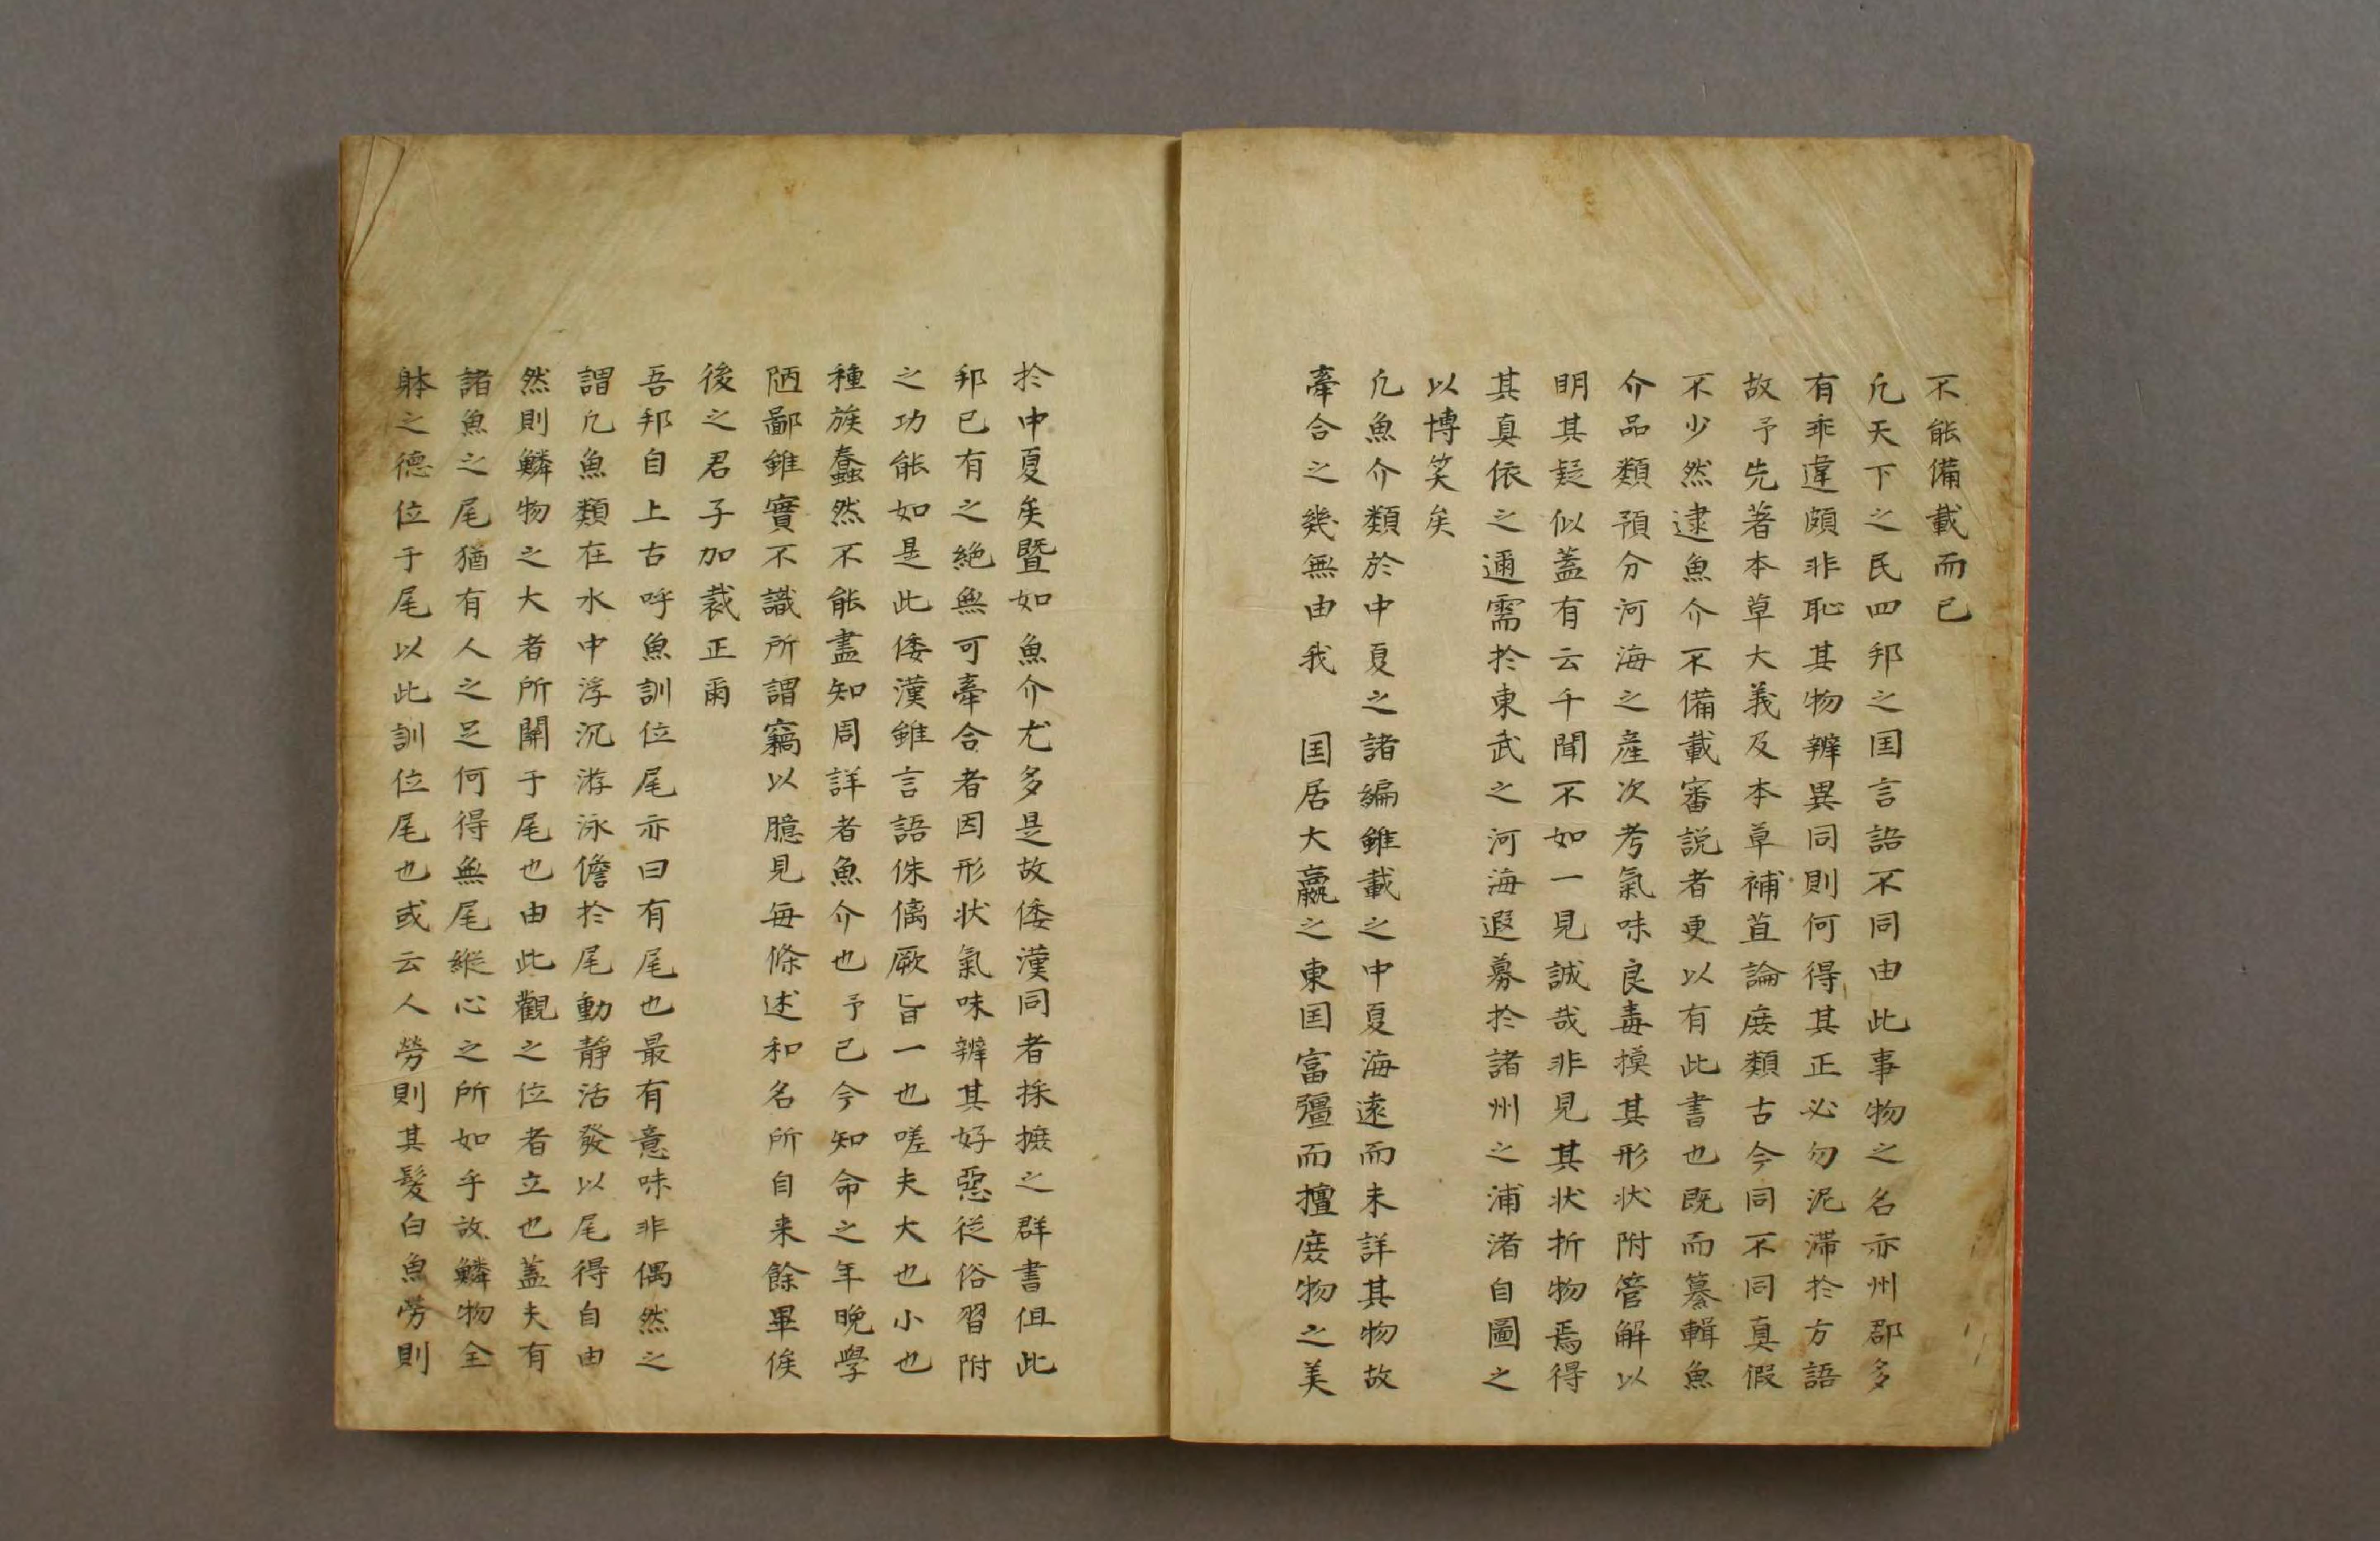 不能備載而已
凢天下之民四邦之囯言語不同由此事物之名亦州郡多
有乖違頗非恥其物辨異同則何得其正必勿泥滞於方語
故予先著本草大義及本草補苴論庻類古今同不同真假
不少然逮魚介不備載審説者更以有此書也既而纂輯魚
介品類預分河海之産次考氣味良毒摸其形状附管解以
明其疑似蓋有云千聞不如一見誠哉非見其状折物焉得
其真依之邇需於東武之河海遐募於諸州之浦渚自圖之
以博笑矣
凢魚介類於中夏之諸編雖載之中夏海遠而未詳其物故
牽合之幾無由我　囯居大瀛之東囯富彊而擅庻物之美
於中夏矣暨如魚介尤多是故倭漢同者採摭之群書但此
邦已有之絶無可牽合者因形状氣味辨其好惡従俗習附
之功能如是此倭漢雖言語侏僪厥旨一也嗟夫大也小也
種族蠢然不能盡知周詳者魚介也予已今知命之年晩學
陋鄙雖實不識所謂竊以臆見毎條述和名所自来餘畢俟
後之君子加裁正爾
吾邦自上古呼魚訓位尾亦曰有尾也最有意味非偶然之
謂凢魚類在水中浮沉游泳儋於尾動静活發以尾得自由
然則鱗物之大者所関于尾也由此觀之位者立也蓋夫有
諸魚之尾猶有人之足何得無尾縱心之所如乎故鱗物全
躰之德位于尾以此訓位尾也或云人勞則其髪白魚労則